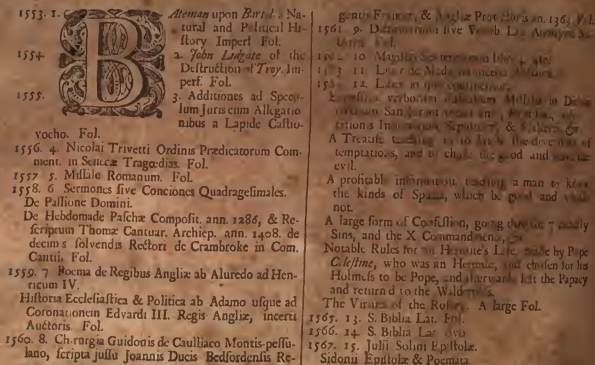 1553. 1. BAteman upon Bartol. Na-
tural and Political Hi-
story Imperf Fol.
1554 2. John Lidgate of the
Destruction of Troy. Im-
perf. Fol.
1555. 3. Additiones ad Specu-
lum Juris cum Allegatio
nibus a Lapide Castiu-
vocho. Fol.
1556. 4. Nicolai Trivetti Ordinis Prædicatorum Com-
ment. in Senecæ Tragœdias. Fol.
1557 5. Missale Romanum. Fol.
1558. 6 Sermones sive Conciones Quadragesimales.
De Passione Domini.
De Hebdomade Paschæ Composit. ann. 1286, & Re-
scriptum Thomæ Cantuar. Archiep. ann. 1408. de
decimis solvendis Rectori de Crambroke in Com.
Cantii. Fol.
1559. 7 Poema de Regibus Angliæ ab Aluredo ad Hen-
ricum IV.
Historia Ecclesiastica & Politica ab Adamo usque ad
Coronationem Edvardi III. Regis Angliæ, incerti
Auctoris. Fol.
1560. 8. Chirurgia Guidonis de Caulliaco Montis-pessu-
lano, scripta jussu Joannis Ducis Bedfordensis Re-
gentis Franciæ, & Angliæ Protectoris an. 1363 Fol.
1561. 9. Dictionarium sive Vocab. Lat.
10 Magister Sententiarum libr. 4. 4to.
11 Liber de Medicamentis
12. Liber in quo continentur.
Expositio verborum
A Treatise teaching
temptations, and to chuse the good and
evil.
A profitable information, teaching a man to know
the kinds of Spirits, which be good and which
not.
A large form of Confession, going through 7 deadly
Sins, and the X Commandments, &c.
Notable Rules for an Hermite's Life, made by Pope
Celestine, who was an Hermite, and chosen for his
Holiness to be Pope, and afterwards left the Papacy
and return'd to the Wilderness.
The Virtues of the Rosary. A large Fol.
1565. 13. S. Biblia Lat. Fol.
1566. 14. S. Biblia Lat. 8vo.
1567. 15. Julii Solini Epistolæ.
Sidonii Epistolæ & Poemata.